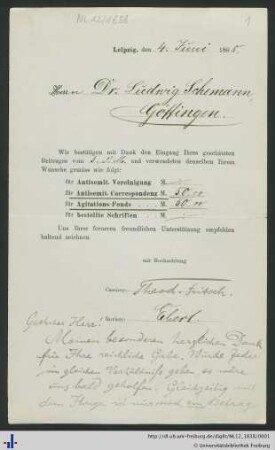 NL 12/1838
1
Leipzig, den 4. Juni 188
Herrn Dr. Ludwig Schemann,
Göttingen.
Wir bestätigen mit Dank den Eingang Ihres geschätzten
Beitrages vom und verwendeten denselben Ihrem
Wunsche gemäss wie folgt:
für Antisemit. Vereinigung M.
für Antisemit. Correspondenz M. 50
für Agitations-Fonds . . . M. 50
für bestellte Schriften . . M.
Uns Ihrer ferneren freundlichen Unterstützung empfohlen
haltend zeichnen
mit Hochachtung
Theod. Fritsch.
Geehrter Herr!
Meinen besonderen herzlichen Dank
für Ihre reichliche Gabe. Würde jeder
im gleichen Verhältniss geben, so wäre
uns bald geholfen. Gleichzeitig mit
dem Ihrigen ein Betrag
http://dl.ub.uni-freiburg.de/diglit/NL12_1838/0001
© Universitätsbibliothek Freiburg